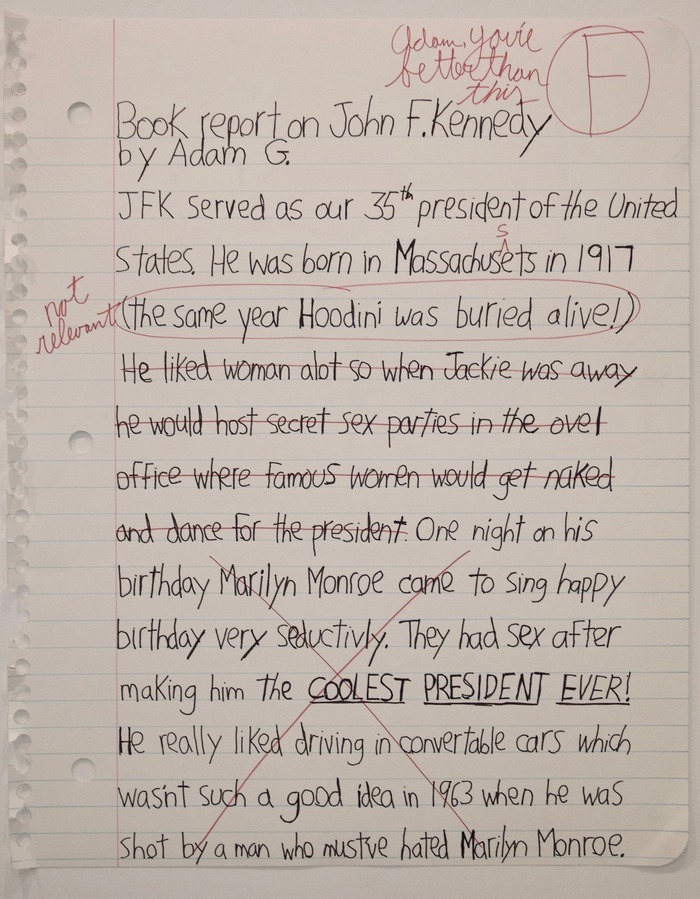 Adam, you're
better than
this
F
Book report on John F. Kennedy
by Adam G.
JFK served as our 35th president of the United
States. He was born in Massachusets in 1917
s
not
relevant
(the same year Hoodini was buried alive!)
He liked woman alot so when Jackie was away
he would host secret sex parties in the ovel
office where famous women would get naked
and dance for the president. One night on his
birthday Marilyn Monroe came to sing happy
birthday very seductivly. They had sex after
making him the COOLEST PRESIDENT EVER!
He really liked driving in convertable cars which
wasn't such a good idea in 1963 when he was
shot by a man who mustve hated Marilyn Monroe.